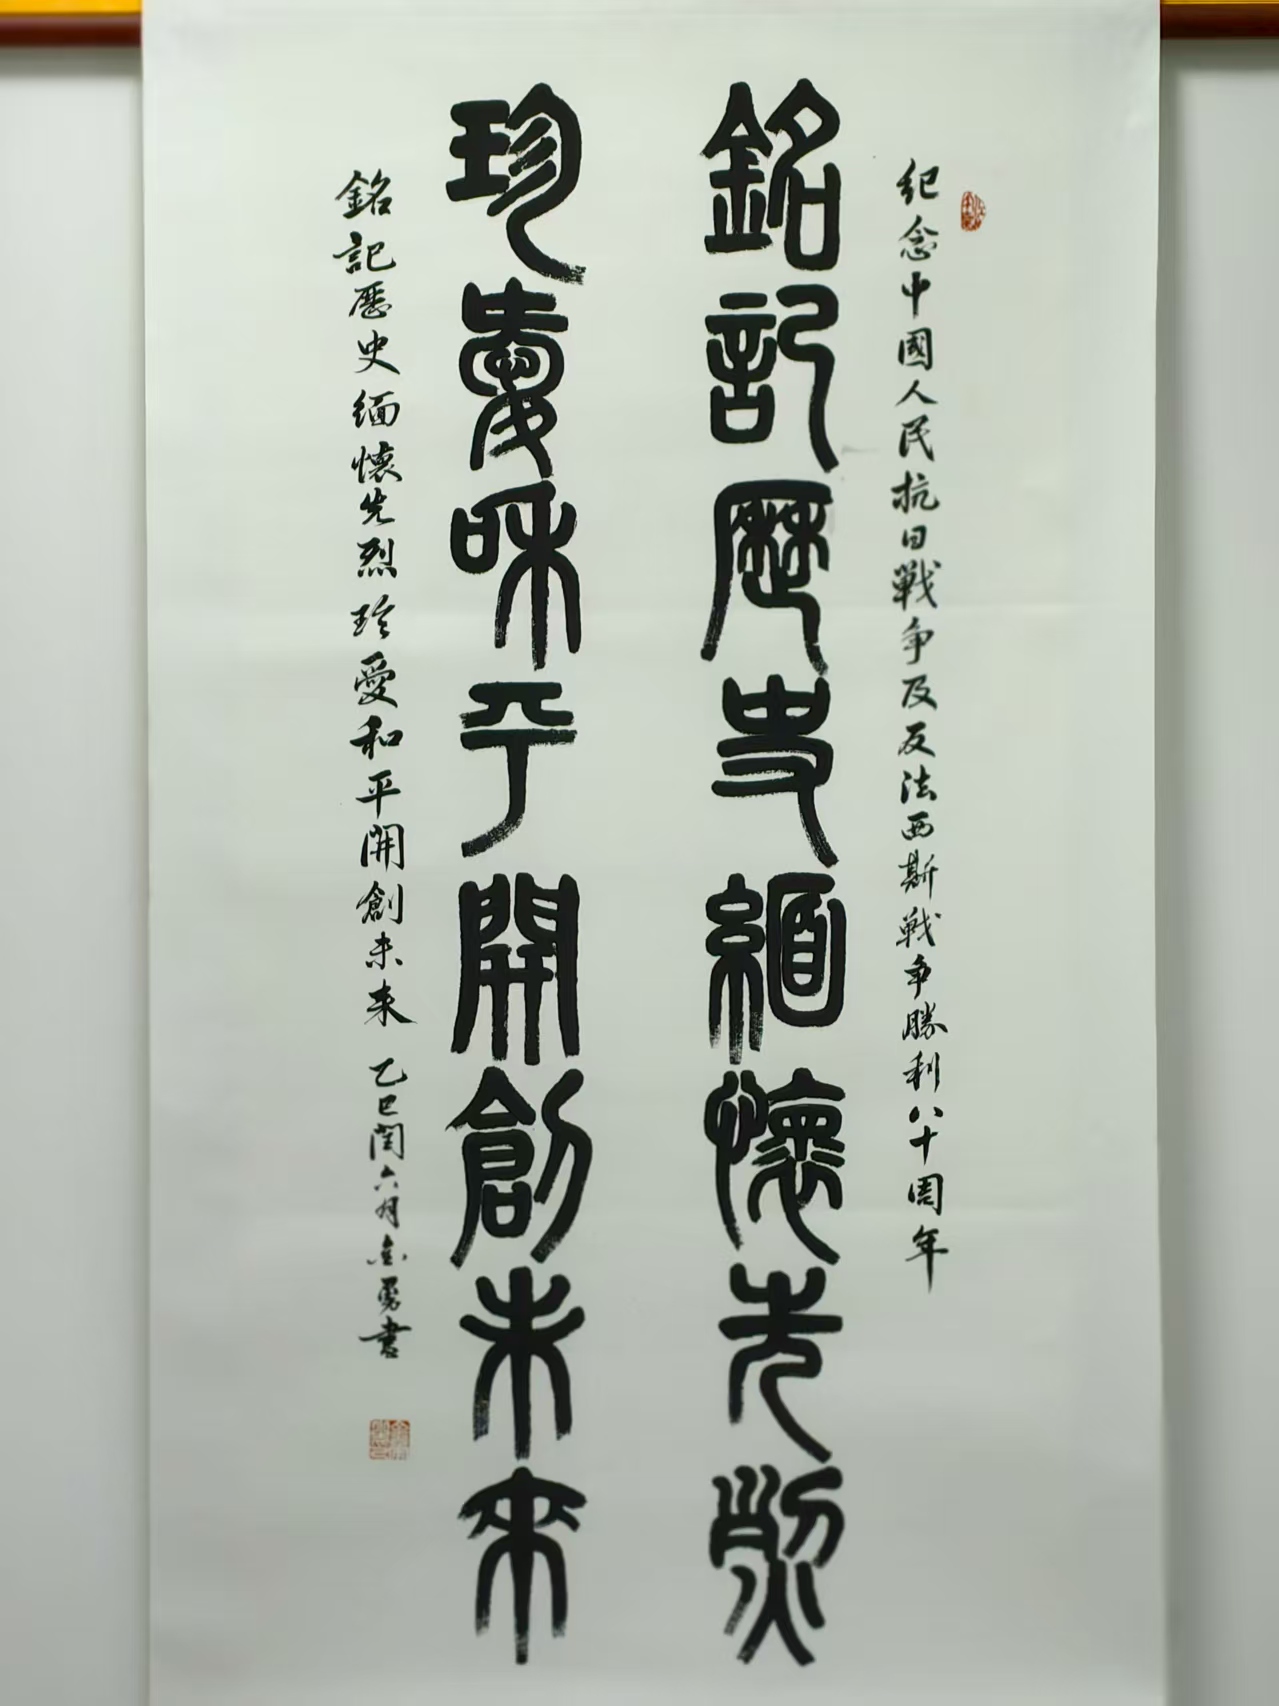 紀念中國人民抗日戰争及反法西斯戰争勝利八十周年
銘記歷史緬懷先烈
珍愛和平開創未來
銘記歷史緬懷先烈珍愛和平開創未来 乙巳閏六月志勇書